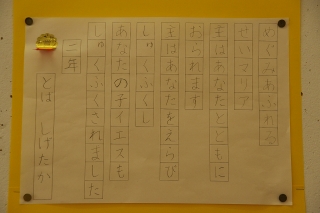 めぐみあふれる
せいマリア
主はあなたとともに
おられます
主はあなたをえらび
しゅくふくし
あなたの子イエスも
しゅくふくされました
二年
とば しげたか